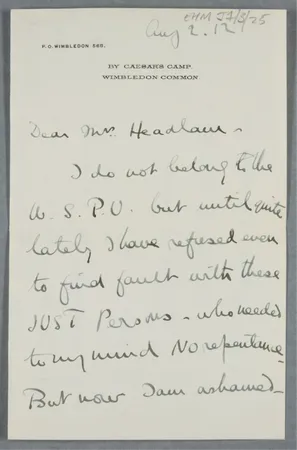 Aug 2. 12
P.O. WIMBLEDON 580.
BY CAESAR'S CAMP.
WIMBLEDON COMMON
Dear Mrs. Headlam -
I do not belong to the
W. S. P. U. but until quite
lately I have refused even
to find fault with these
JUST Persons - who needed
to my mind No repentance -
But now I am ashamed -